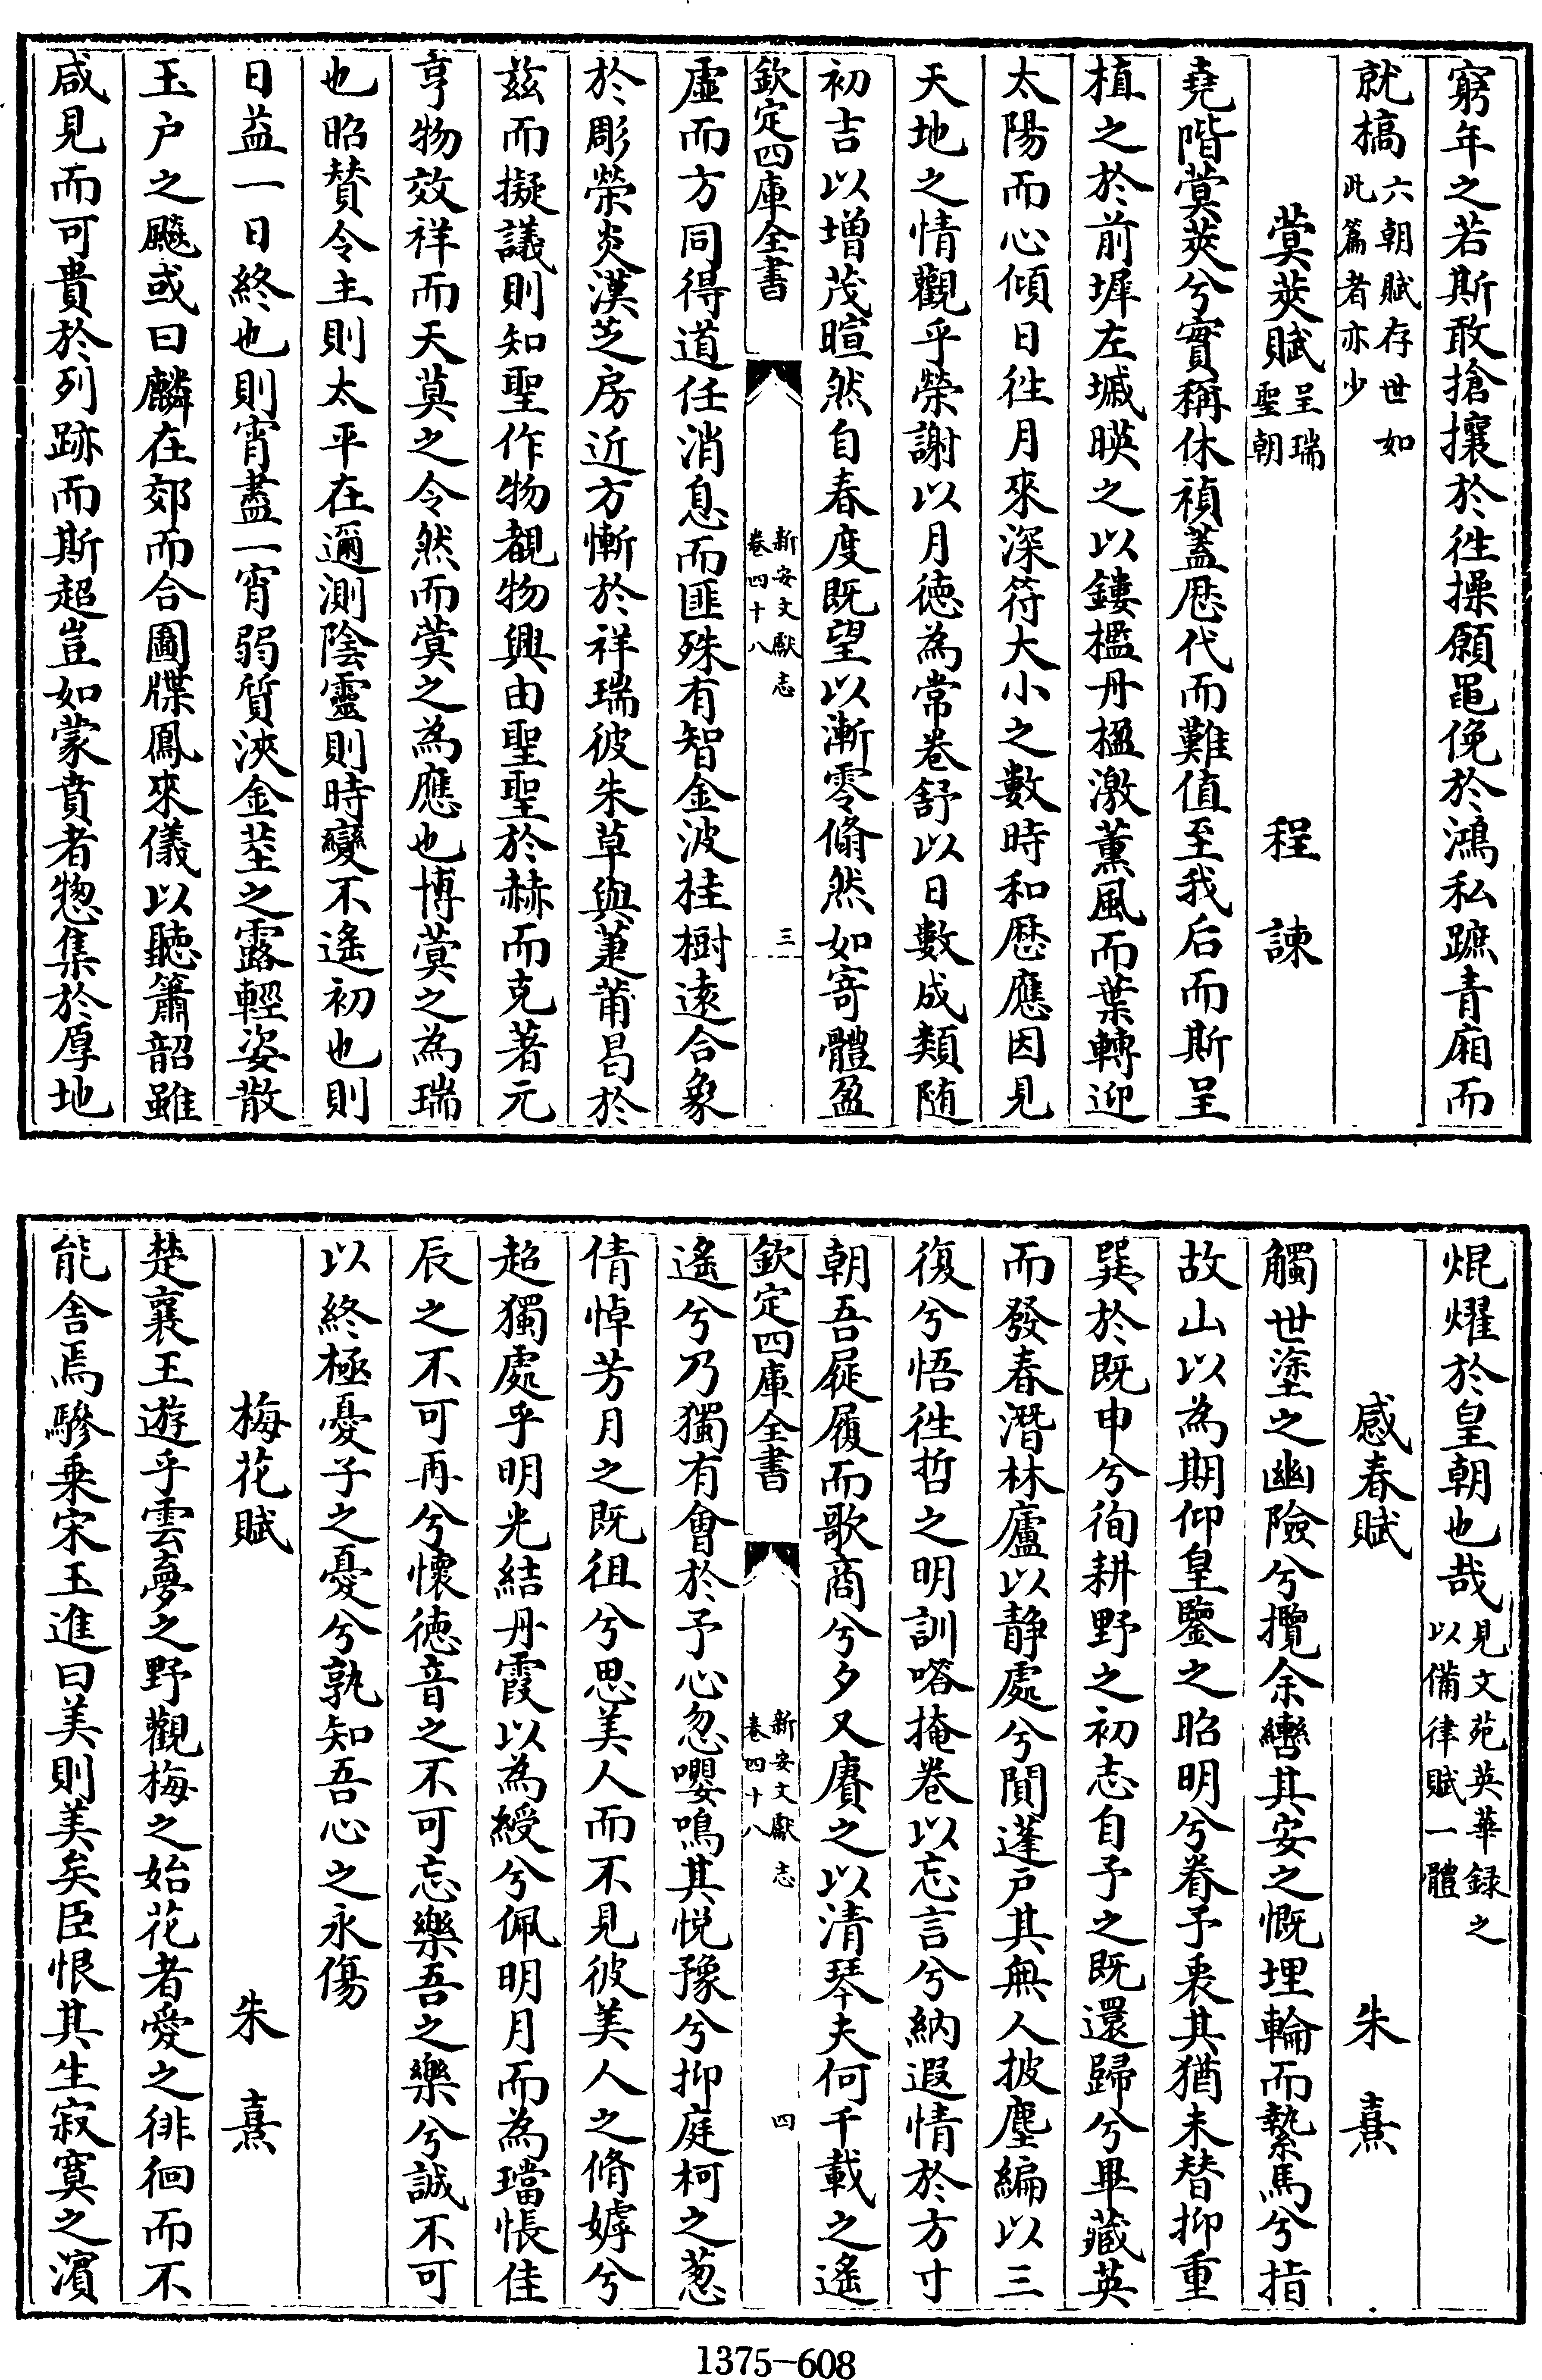 窮年之若斯敢搶攘於徃操願黽俛於鴻私蹠青廂而
就槁六朝賦存世如此篇者亦少
蓂莢賦呈瑞聖朝 程諫
堯階蓂莢兮實稱休禎蓋歴代而難值至我后而斯呈
植之於前墀左墄暎之以鏤檻丹楹激薰風而葉轉迎
太陽而心傾日徃月來深符大小之數時和歴應因見
天地之情觀乎榮謝以月徳為常卷舒以日數成類随
初吉以增茂暄然自春度既望以漸零翛然如寄體盈
欽定四庫全書 新安文獻志卷四十八 三
虛而方同得道任消息而匪殊有智金波桂樹逺合象
於彫榮炎漢芝房近方慚於祥瑞彼朱草與萐莆曷於
兹而擬議則知聖作物覩物興由聖聖於赫而克著元
亨物效祥而天莫之令然而蓂之為應也博蓂之為瑞
也昭賛令主則太平在邇測陰靈則時變不遙初也則
日益一日終也則宵盡一宵弱質浹金莖之露輕姿散
玉户之飈或曰麟在郊而合圖牒鳳來儀以聽簫韶雖
咸見而可貴於列跡而斯超豈如蒙賁者惣集於厚地
焜燿於皇朝也哉見文苑英華録之以備律賦一體
感春賦 朱熹
觸世塗之幽險兮攬余轡其安之慨埋輪而縶馬兮指
故山以為期仰皇鑒之昭明兮眷予衷其猶未替抑重
巽於既申兮徇耕野之初志自予之既還歸兮畢藏英
而發春潛林廬以静處兮閴蓬戸其無人披塵編以三
復兮悟徃哲之明訓嗒掩卷以忘言兮納遐情於方寸
朝吾屣履而歌商兮夕又賡之以清琴夫何千載之遙
欽定四庫全書 新安文獻志卷四十八 四
遙兮乃獨有會於予心忽嚶鳴其悦豫兮抑庭柯之葱
倩悼芳月之既徂兮思美人而不見彼美人之脩嫭兮
超獨處乎明光結丹霞以為綬兮佩明月而為璫悵佳
辰之不可再兮懷徳音之不可忘樂吾之樂兮誠不可
以終極憂子之憂兮孰知吾心之永傷
梅花賦 朱熹
楚襄王遊乎雲夢之野觀梅之始花者愛之徘徊而不
能舍焉驂乗宋玉進曰美則美矣臣恨其生寂寞之濵
1375-608